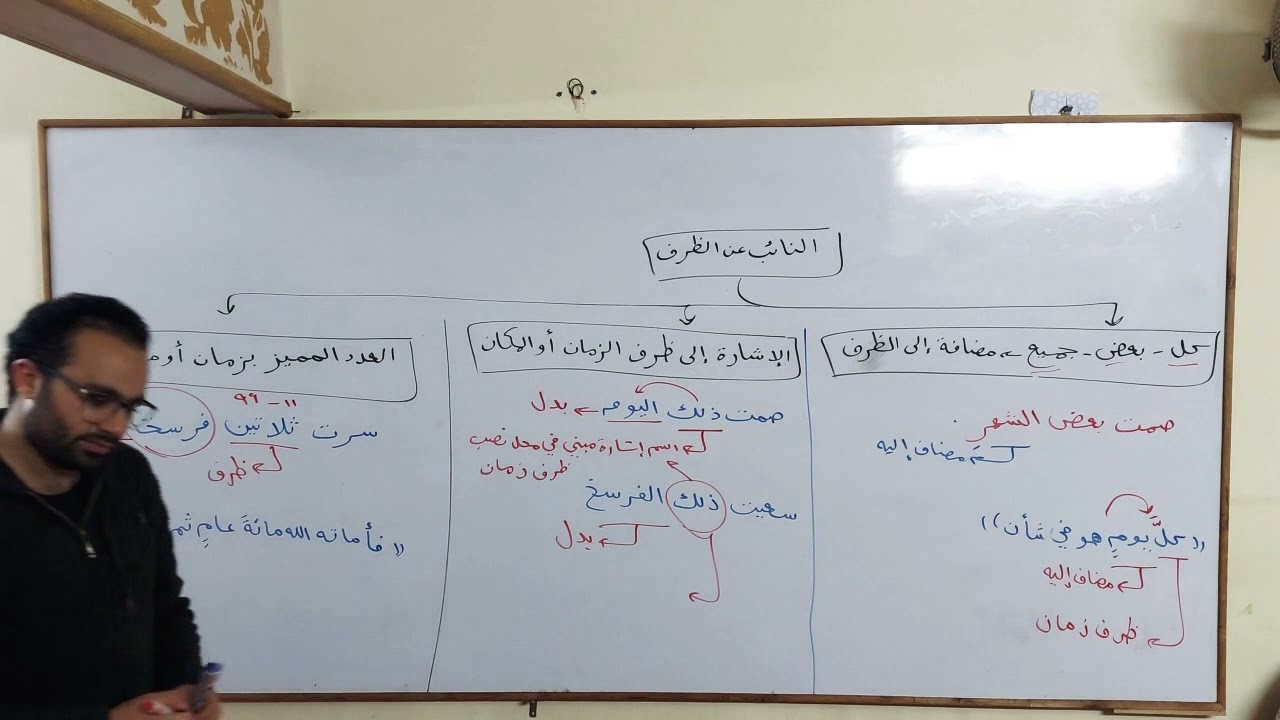 النائب عن الظرف
كل - بعض - جميع ← مضافة إلى الظرف
صمت بعض الشهرِ.
مضاف إليه
((كلَّ يومٍ هو في شأن))
مضاف إليه
ظرف زمان
الإشارة إلى ظرف الزمان أو المكان
صمت ذلك اليوم ← بدل
اسم إشارة مبني في محل نصب
ظرف زمان
سعيت ذلك الفرسخ
بدل
العدد المميز بزمان أو
١١ - ٩٩
سرت ثلاثين فرسخا
ظرف
((فأماته الله مائةَ عامٍ